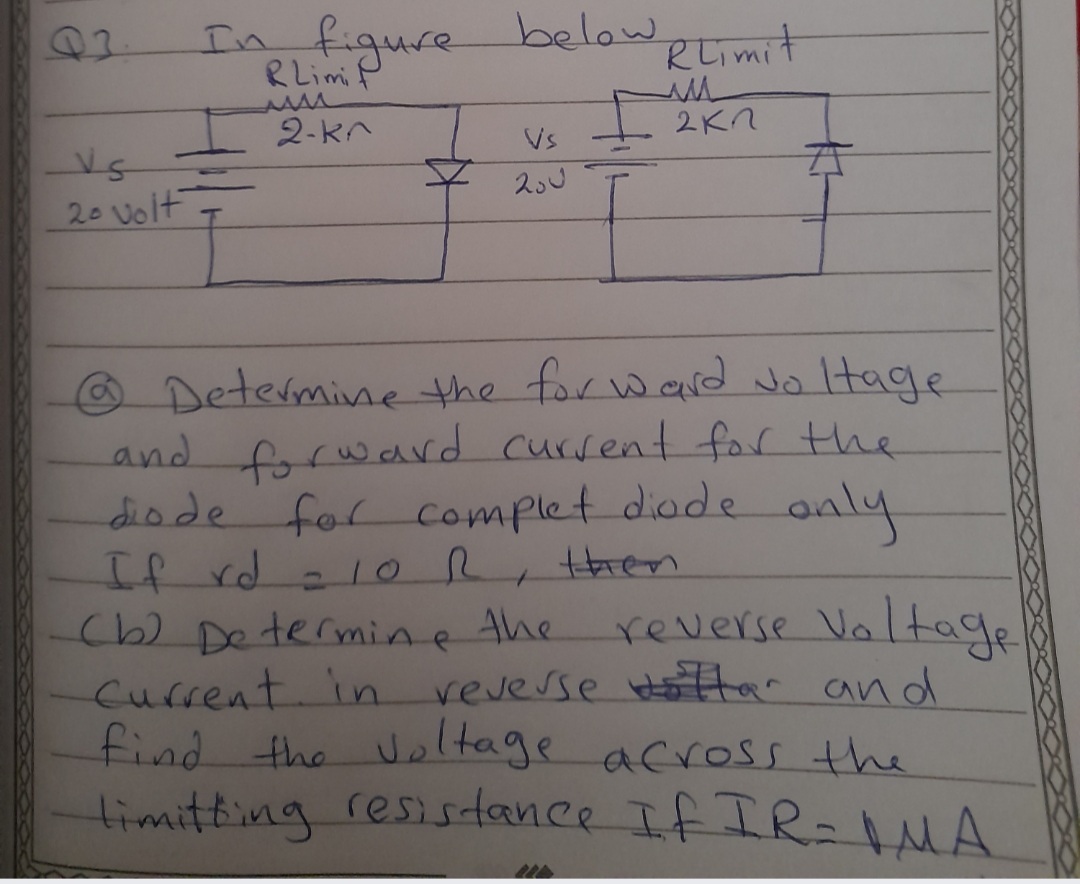 Q3. In figure below
RLimit RLimit
2-kΩ 2KΩ
Vs Vs
20 volt 20V
ⓐ Determine the forward voltage
and forward current for the
diode for complet diode only
If rd = 10 Ω, then
(b) Determine the reverse Voltage
current in reverse and
find the voltage across the
limitting resistance If IR = 1MA